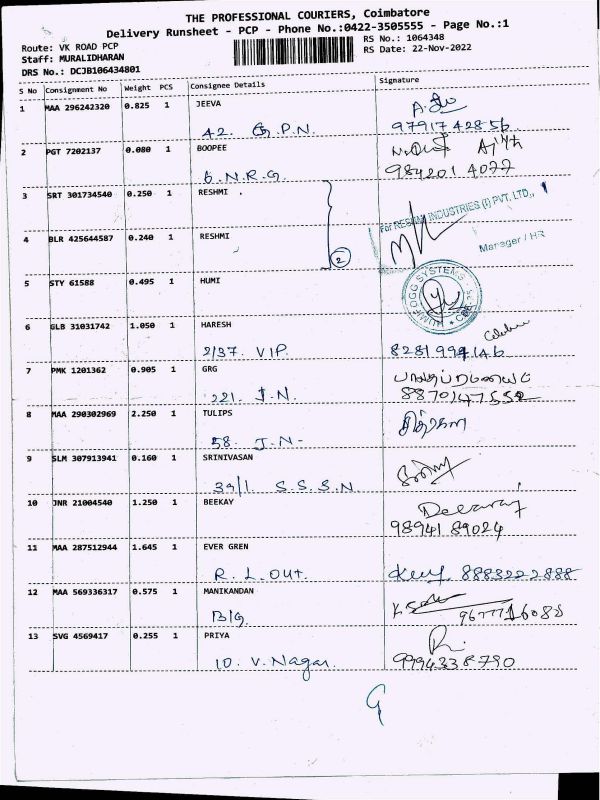 THE PROFESSIONAL COURIERS, Coimbatore
Delivery Runsheet - PCP - Phone No.:0422-3505555 - Page No.:1
Route: VK ROAD PCP RS No.: 1064348
Staff: MURALIDHARAN RS Date: 22-Nov-2022
DRS No.: DCJB106434801
S No Consignment No Weight PCS Consignee Details Signature
1 MAA 296242320 0.825 1 JEEVA
42. G.P.N. 9791742856
2 PGT 7202137 0.080 1 BOOPEE
6.N.R.G. 9842014077
3 SRT 301734540 0.250 1 RESHMI
For RESHMI INDUSTRIES (I) PVT. LTD.,
4 BLR 425644587 0.240 1 RESHMI
2 Manager / HR
5 STY 61588 0.495 1 HUMI
HUMIFOGG SYSTEMS
6 GLB 31031742 1.050 1 HARESH
2/37. VIP.
7 PMK 1201362 0.905 1 GRG
221. J.N. 8870147552
8 MAA 290302969 2.250 1 TULIPS
58. J.N-
9 SLM 307913941 0.160 1 SRINIVASAN
39/1 S.S.S.N
10 JNR 21004540 1.250 1 BEEKAY
98941 89024
11 MAA 287512944 1.645 1 EVER GREN
R.L.Out. 8883222888
12 MAA 569336317 0.575 1 MANIKANDAN
B/G
13 SVG 4569417 0.255 1 PRIYA
10. V.Nagar. 9994338790